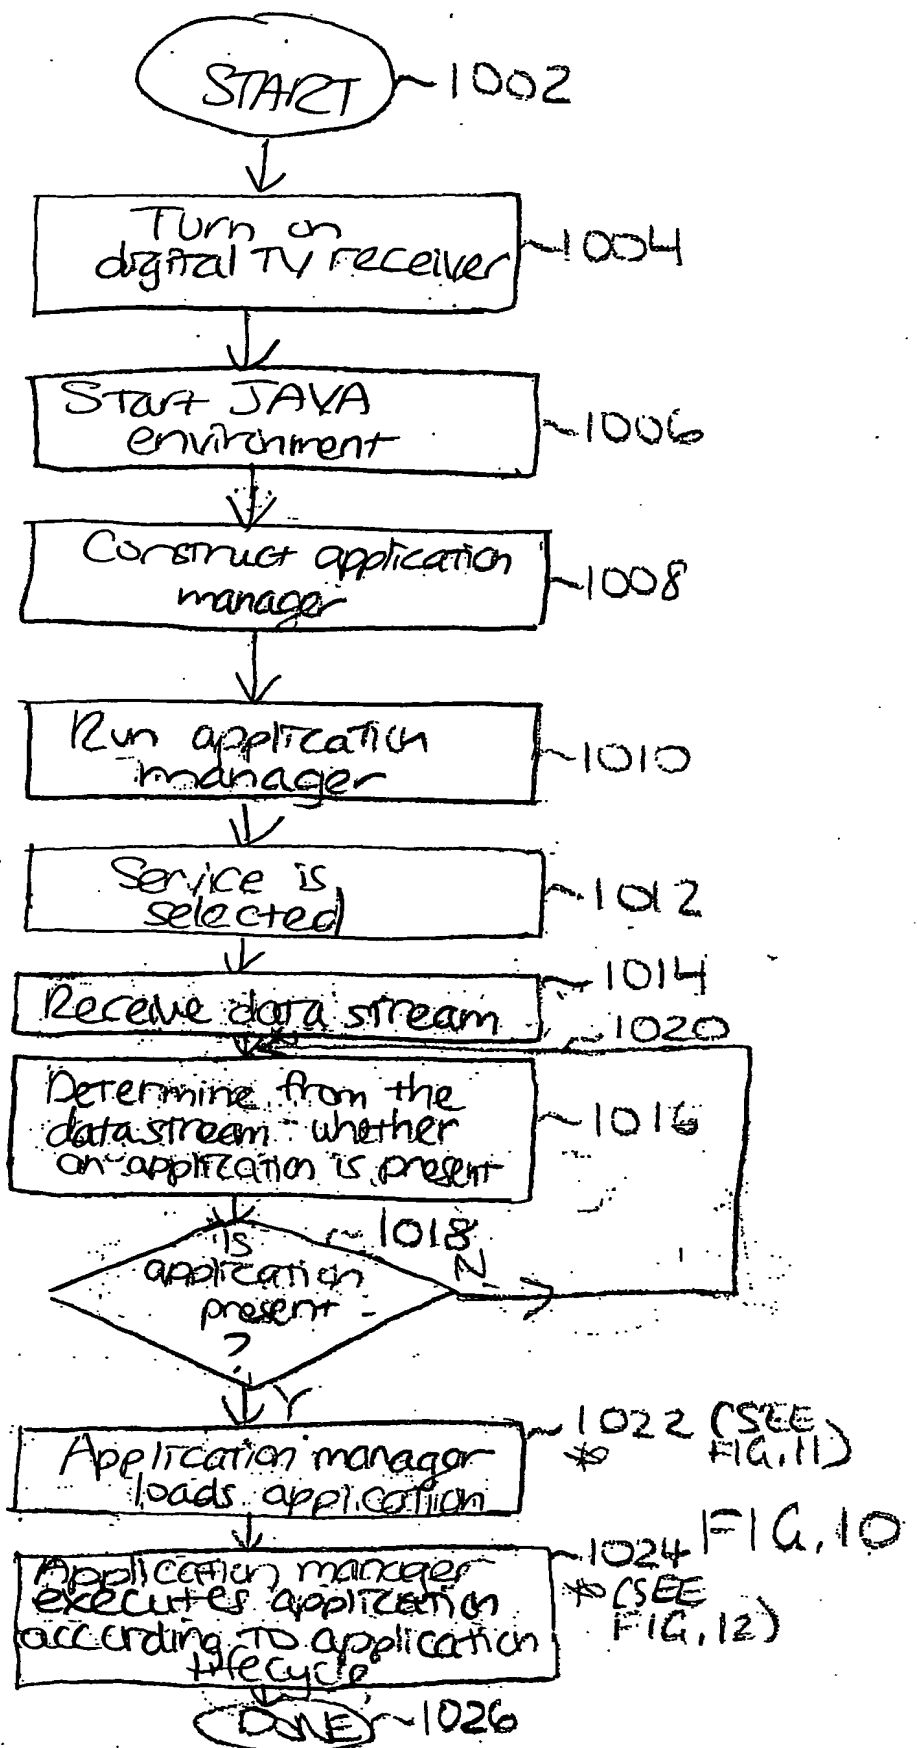 START ~1002
Turn on
digital TV receiver ~1004
Start JAVA
environment ~1006
Construct application
manager ~1008
Run application
manager ~1010
Service is
selected ~1012
~1014
Receive data stream
~1020
Determine from the
data stream whether
an application is present
~1016
~1018
Is
application
present
?
N
Y
Application manager
loads application
~1022 (SEE
* FIG. 11)
FIG. 10
Application manager
executes application
according to application
lifecycle
~1024
* (SEE
FIG. 12)
DONE ~1026